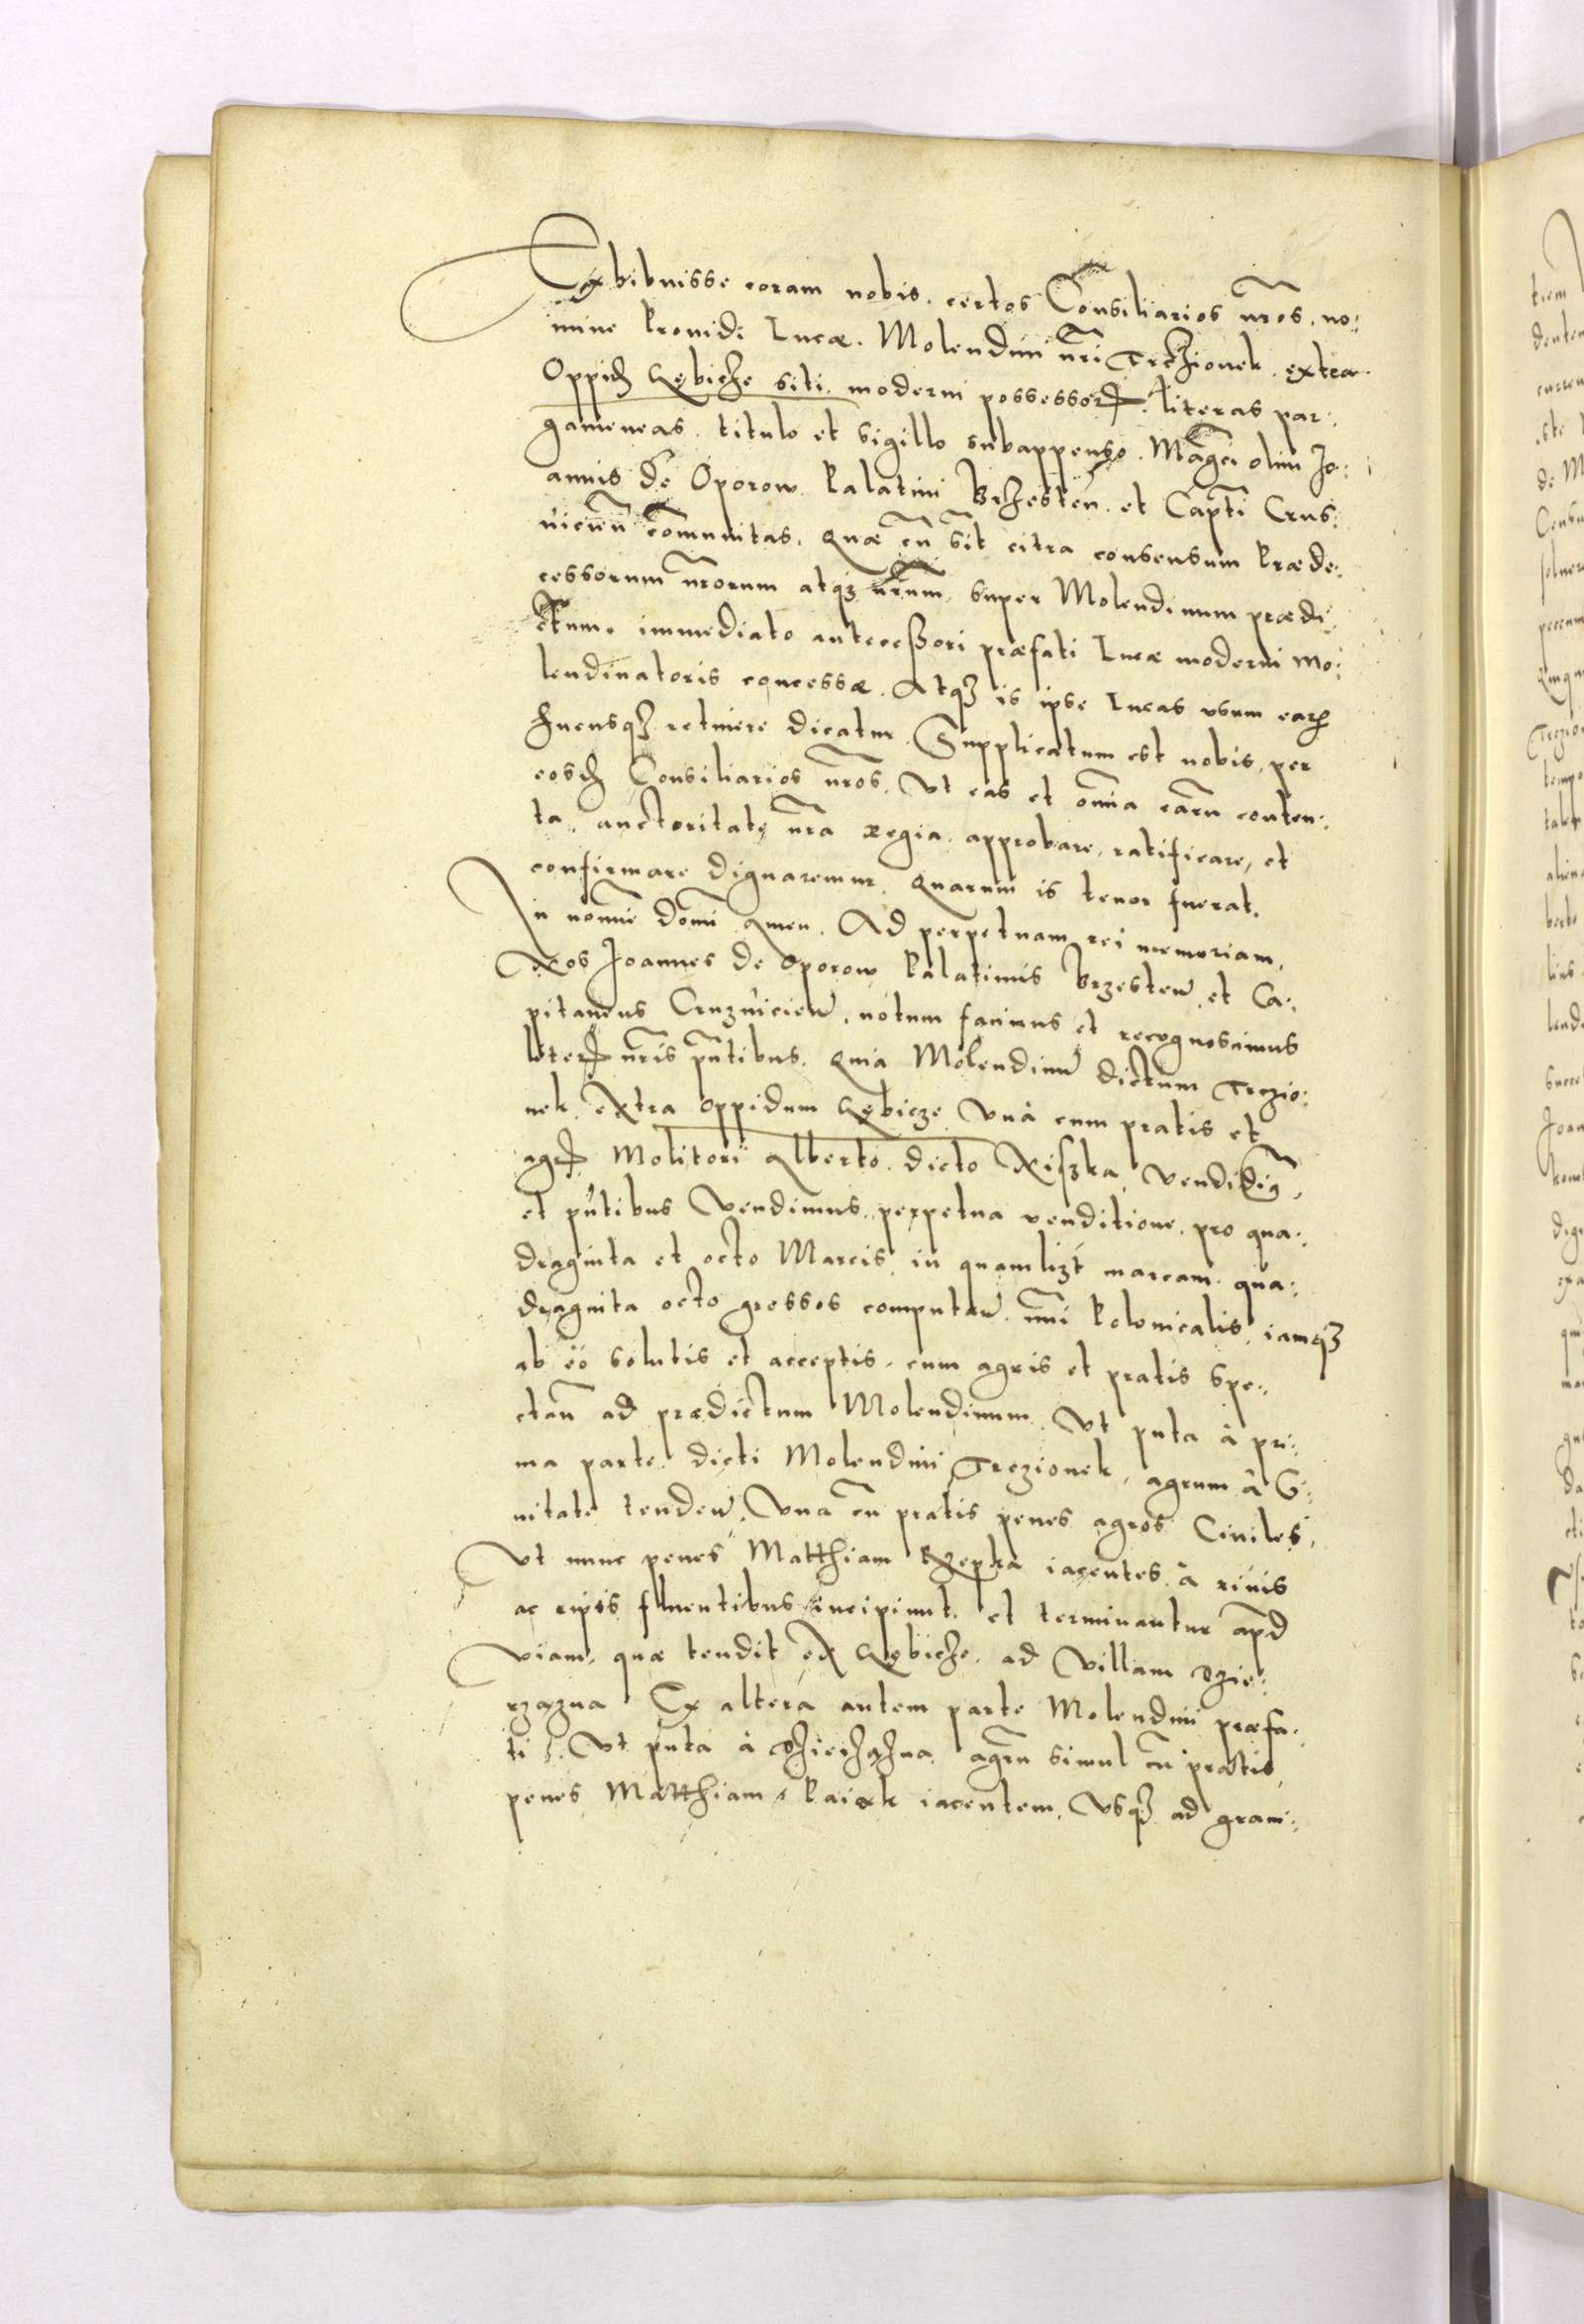 Exhibuisse coram nobis. certos Consiliarios nr̃os. no:
mine Prouidi Lucæ. Molendini nr̃i Trczionek. extra
Oppid Gębicze siti. moderni possessoris. literas par:
gameneas. titulo et sigillo subappenso. Mag̃ci olim Jo:
annis de Oporow Palatini Brzesteñ. et Capt̃i Crus:
uicieñ cõmunitas. Quæ cũ sit citra consensum Præde:
cessorum nr̃orum atq3 nr̃um. super Molendinum prædi:
ctum. immediato antecessori præfati Lucæ moderni Mo:
lendinatoris concessæ. Atq3 is ipse Lucas usum earũ
hucusq3 retinere dicatur. Supplicatum est nobis, per
eosd Consiliarios nr̃os. Vt eas et om̃ia earũ conten:
ta, auctoritate nr̃a regia. approbare, ratificare, et
confirmare dignaremur. Quarum is tenor fuerat.
In nomĩe Domĩ Amen. Ad perpetuam rei memoriam,
Nos Joannes de Oporow Palatinus Brzesteñ et Ca:
pitaneus Cruzuicieñ. notum facimus et recognoscimus
literis nr̃is pñtibus. Quia Molendinũ dictum Trczio:
nek extra Oppidum Gębicze Vnà cum pratis et
agris Molitori Alberto. dicto Kiszka, Vendidim9,
et pñtibus Vendimus. perpetua venditione. pro qua:
draginta et octo Marcis in quamlizt marcam. qua:
draginta octo grossos computañ. num̃i Polonicalis, iamq3
ab eo solutis et acceptis. cum agris et pratis spe:
ctañ ad prædictum Molendinum. Vt puta à pri:
ma parte dicti Molendini Trczionek, agrum à Ci:
uitate tendeñ. Vna cũ pratis penes agros Ciuiles,
Vt nunc penes Matthiam Rzepka iacentes à riuis
ac ripis fluentibus incipiunt. et terminantur apud
viam, quæ tendit ex Gębicze. ad Villam Dzie:
rzązna Ex altera autem parte Molendini præfa:
ti. Vt puta à Dzierzązna agrũ simul cũ pratis,
penes Matthiam Paiąk iacentem. Vsq3 ad grani: